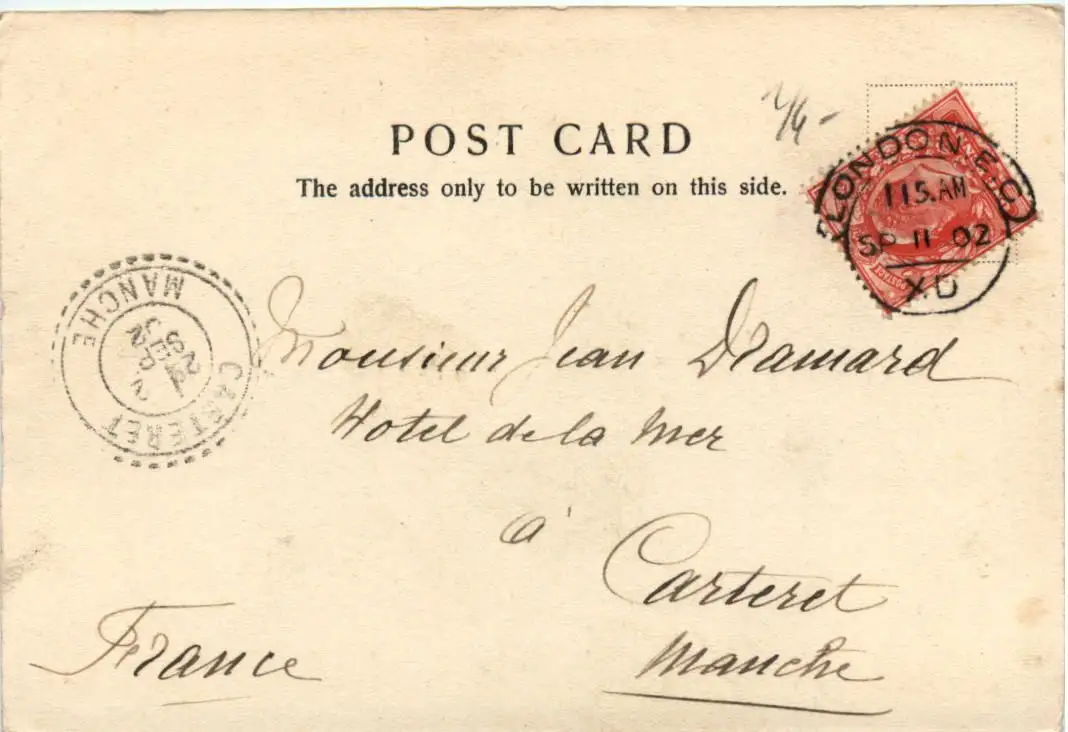 POST CARD
The address only to be written on this side.
1/6-
LONDON. E.C
115.AM
SP 11 02
X.D
MANCHE
CARTERET
Monsieur Jean Dramard
Hotel de la Mer
à
Carteret
France
Manche